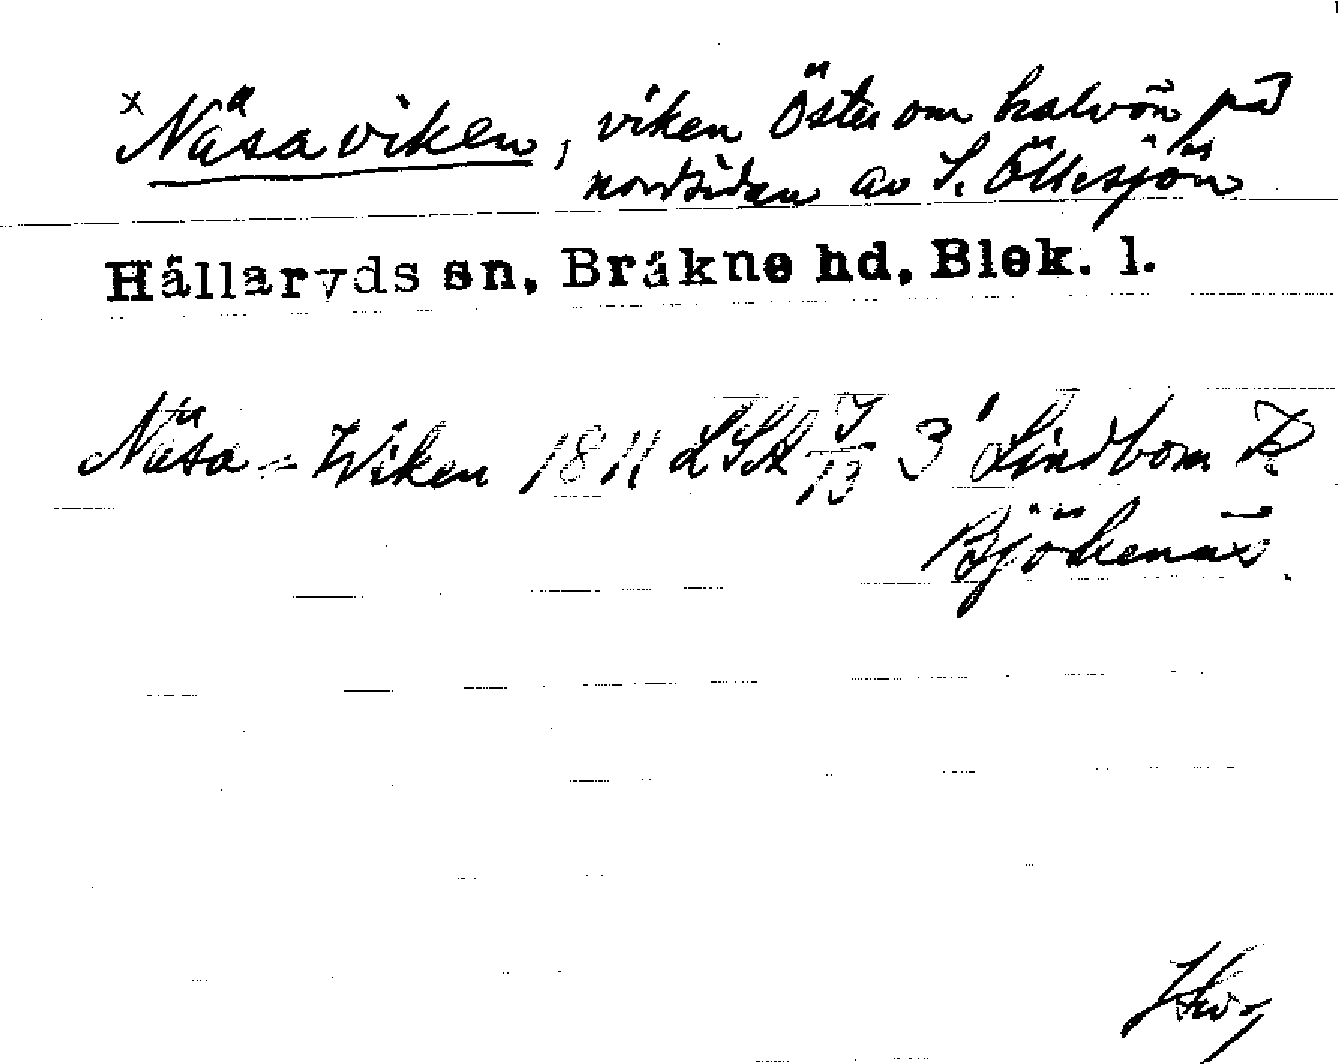 x Näsaviken, viken Öster om halvön på
nordsidan av S. Öllesjön
Hällaryds sn, Bräkne hd, Blek. l.
Näsa-Wiken 1811 LSA 3 Lindbom